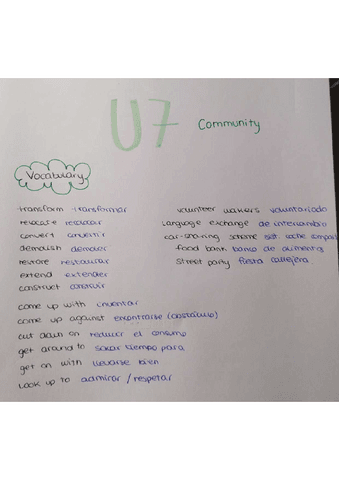 U7 Community
Vocabulary
transform transformar
relocate reubicar
convert convertir
demolish demoler
restore restaurar
extend extender
construct construir
come up with inventar
come up against encontrarse (obstáculo)
cut down on reducir el consumo
get around to sacar tiempo para
get on with llevarse bien
look up to admirar / respetar
volunteer workers voluntariado
language exchange de intercambio
car-sharing scheme sist. coche compart
food bank banco de alimentos
street party fiesta callejera